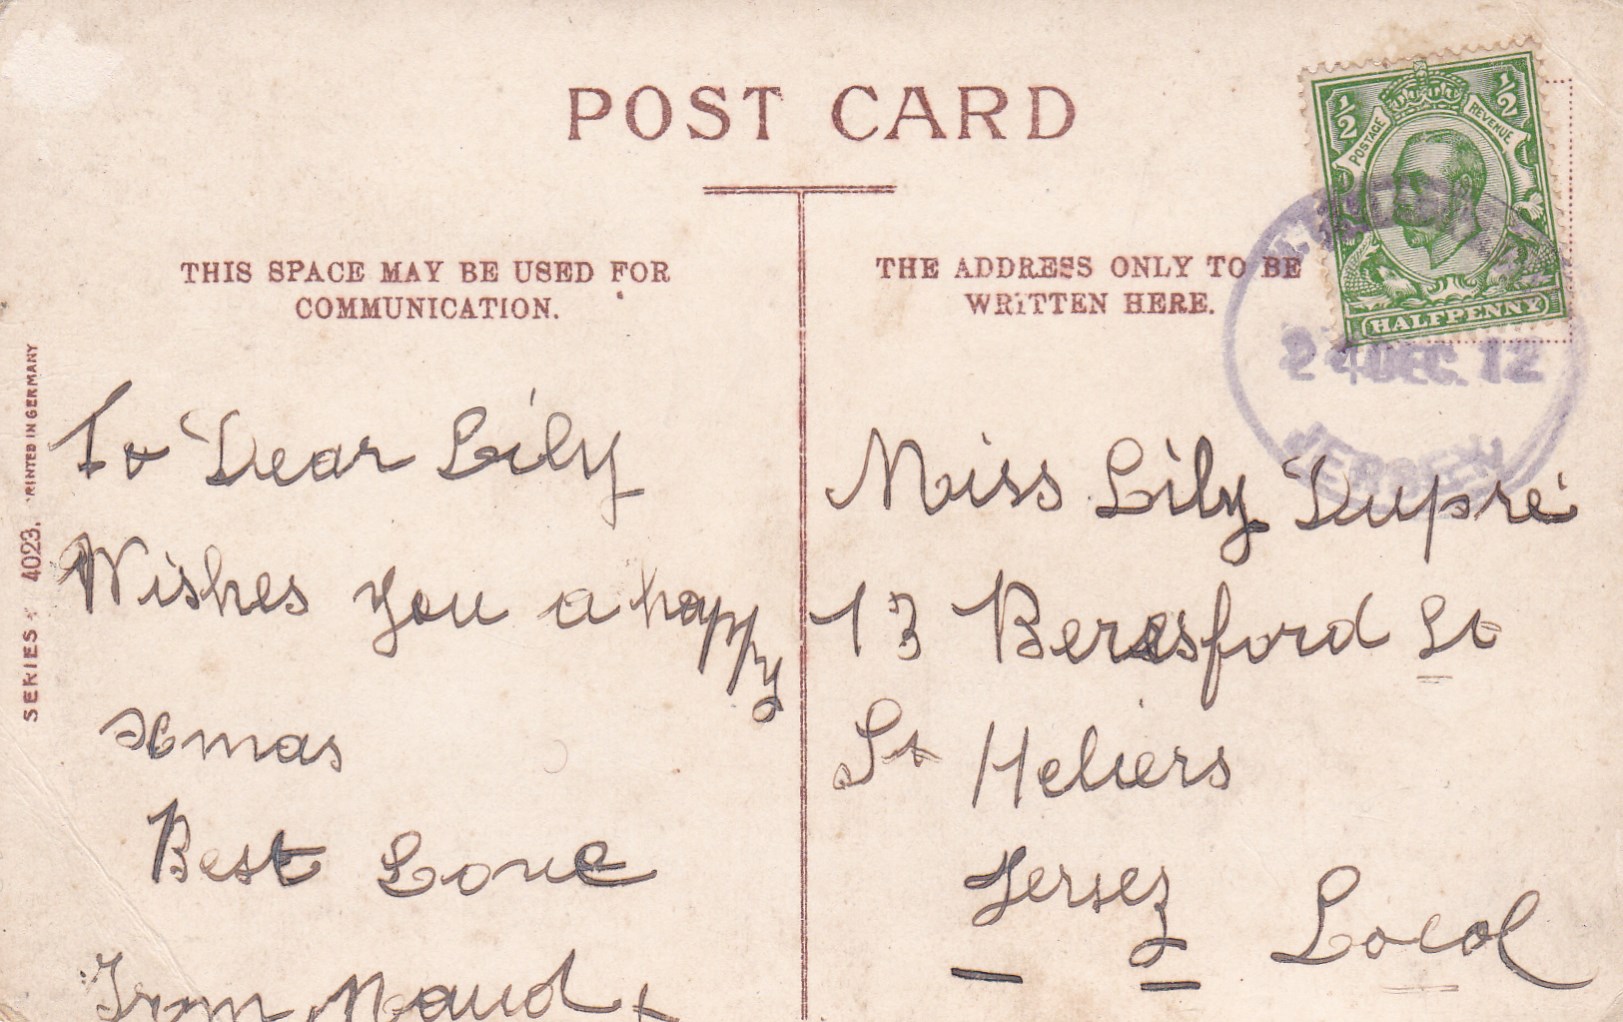 POST CARD
THIS SPACE MAY BE USED FOR
COMMUNICATION.
THE ADDRESS ONLY TO BE
WRITTEN HERE.
½
½
POSTAGE
REVENUE
HALFPENNY
24 DEC. 12
JERSEY
SERIES 4023. RINTED IN GERMANY
To Dear Lily
Wishes you a happy
Xmas
Best Love
From Maud
Miss Lily Dupré
13 Beresford St
St Heliers
Jersey
Local